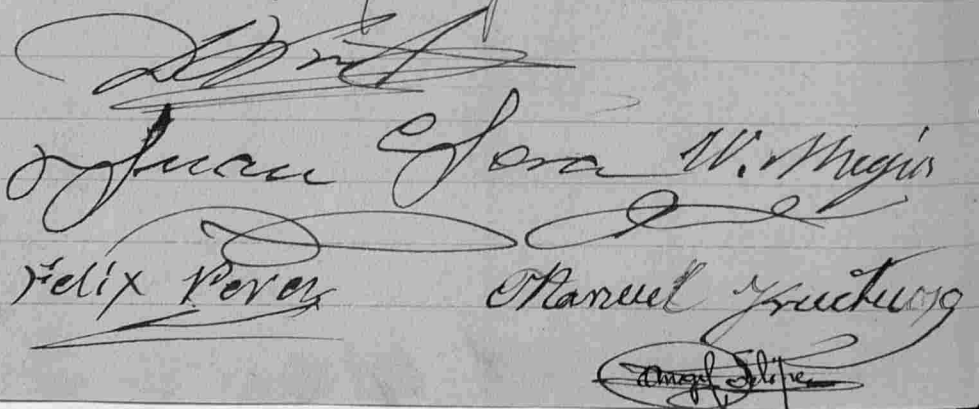 Juan Jora W. Megia
Felix Perez Manuel Fructuoso
Angel Felipe